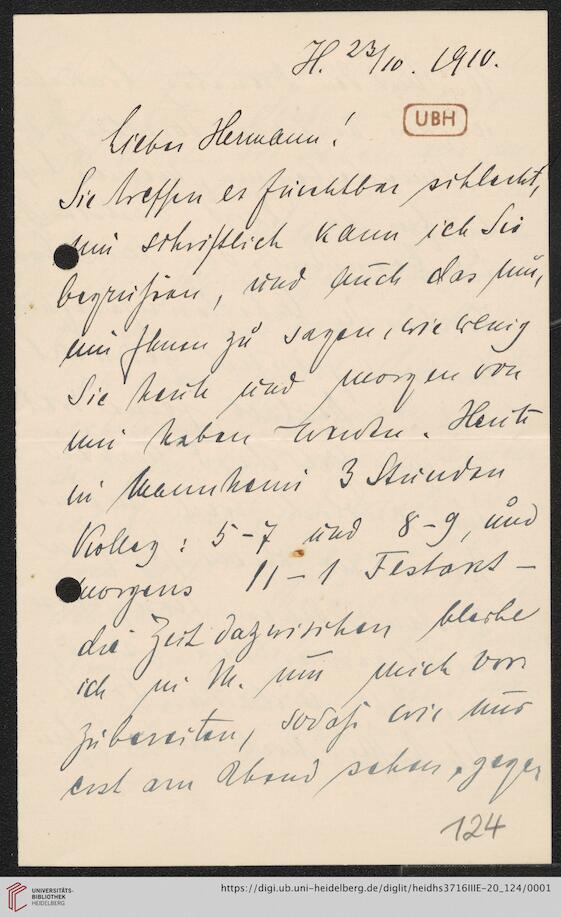 H. 23/10. 1910.
UBH
Lieber Hermann!
Sie treffen es furchtbar schlecht,
nur schriftlich kann ich Sie
begrüssen, und auch das nur,
um Ihnen zu sagen, wie wenig
Sie heute und morgen von
mir haben werden. Heute
in Mannheim 3 Stunden
Kolleg: 5-7 und 8-9, und
morgens 11-1 Festakt -
die Zeit dazwischen bleibe
ich in M. um mich vor
zubereiten, sodass wir uns
erst am Abend sehen, gegen
124
UNIVERSITÄTS-
BIBLIOTHEK
HEIDELBERG
https://digi.ub.uni-heidelberg.de/diglit/heidhs3716IIIE-20_124/0001